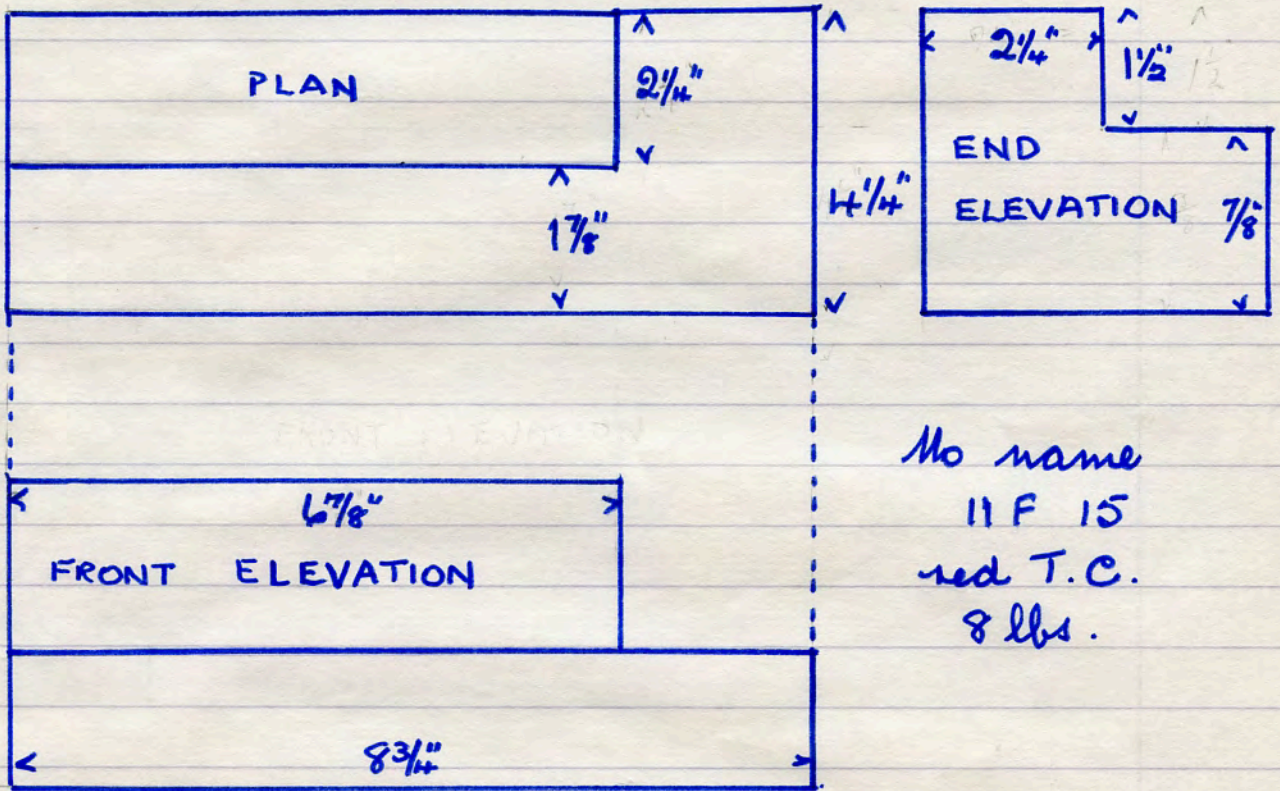 PLAN
2¼"
1⅞"
4¼"
2¼"
1½"
END
ELEVATION
⅞"
6⅞"
FRONT ELEVATION
8¾"
No name
11 F 15
red T.C.
8 lbs.